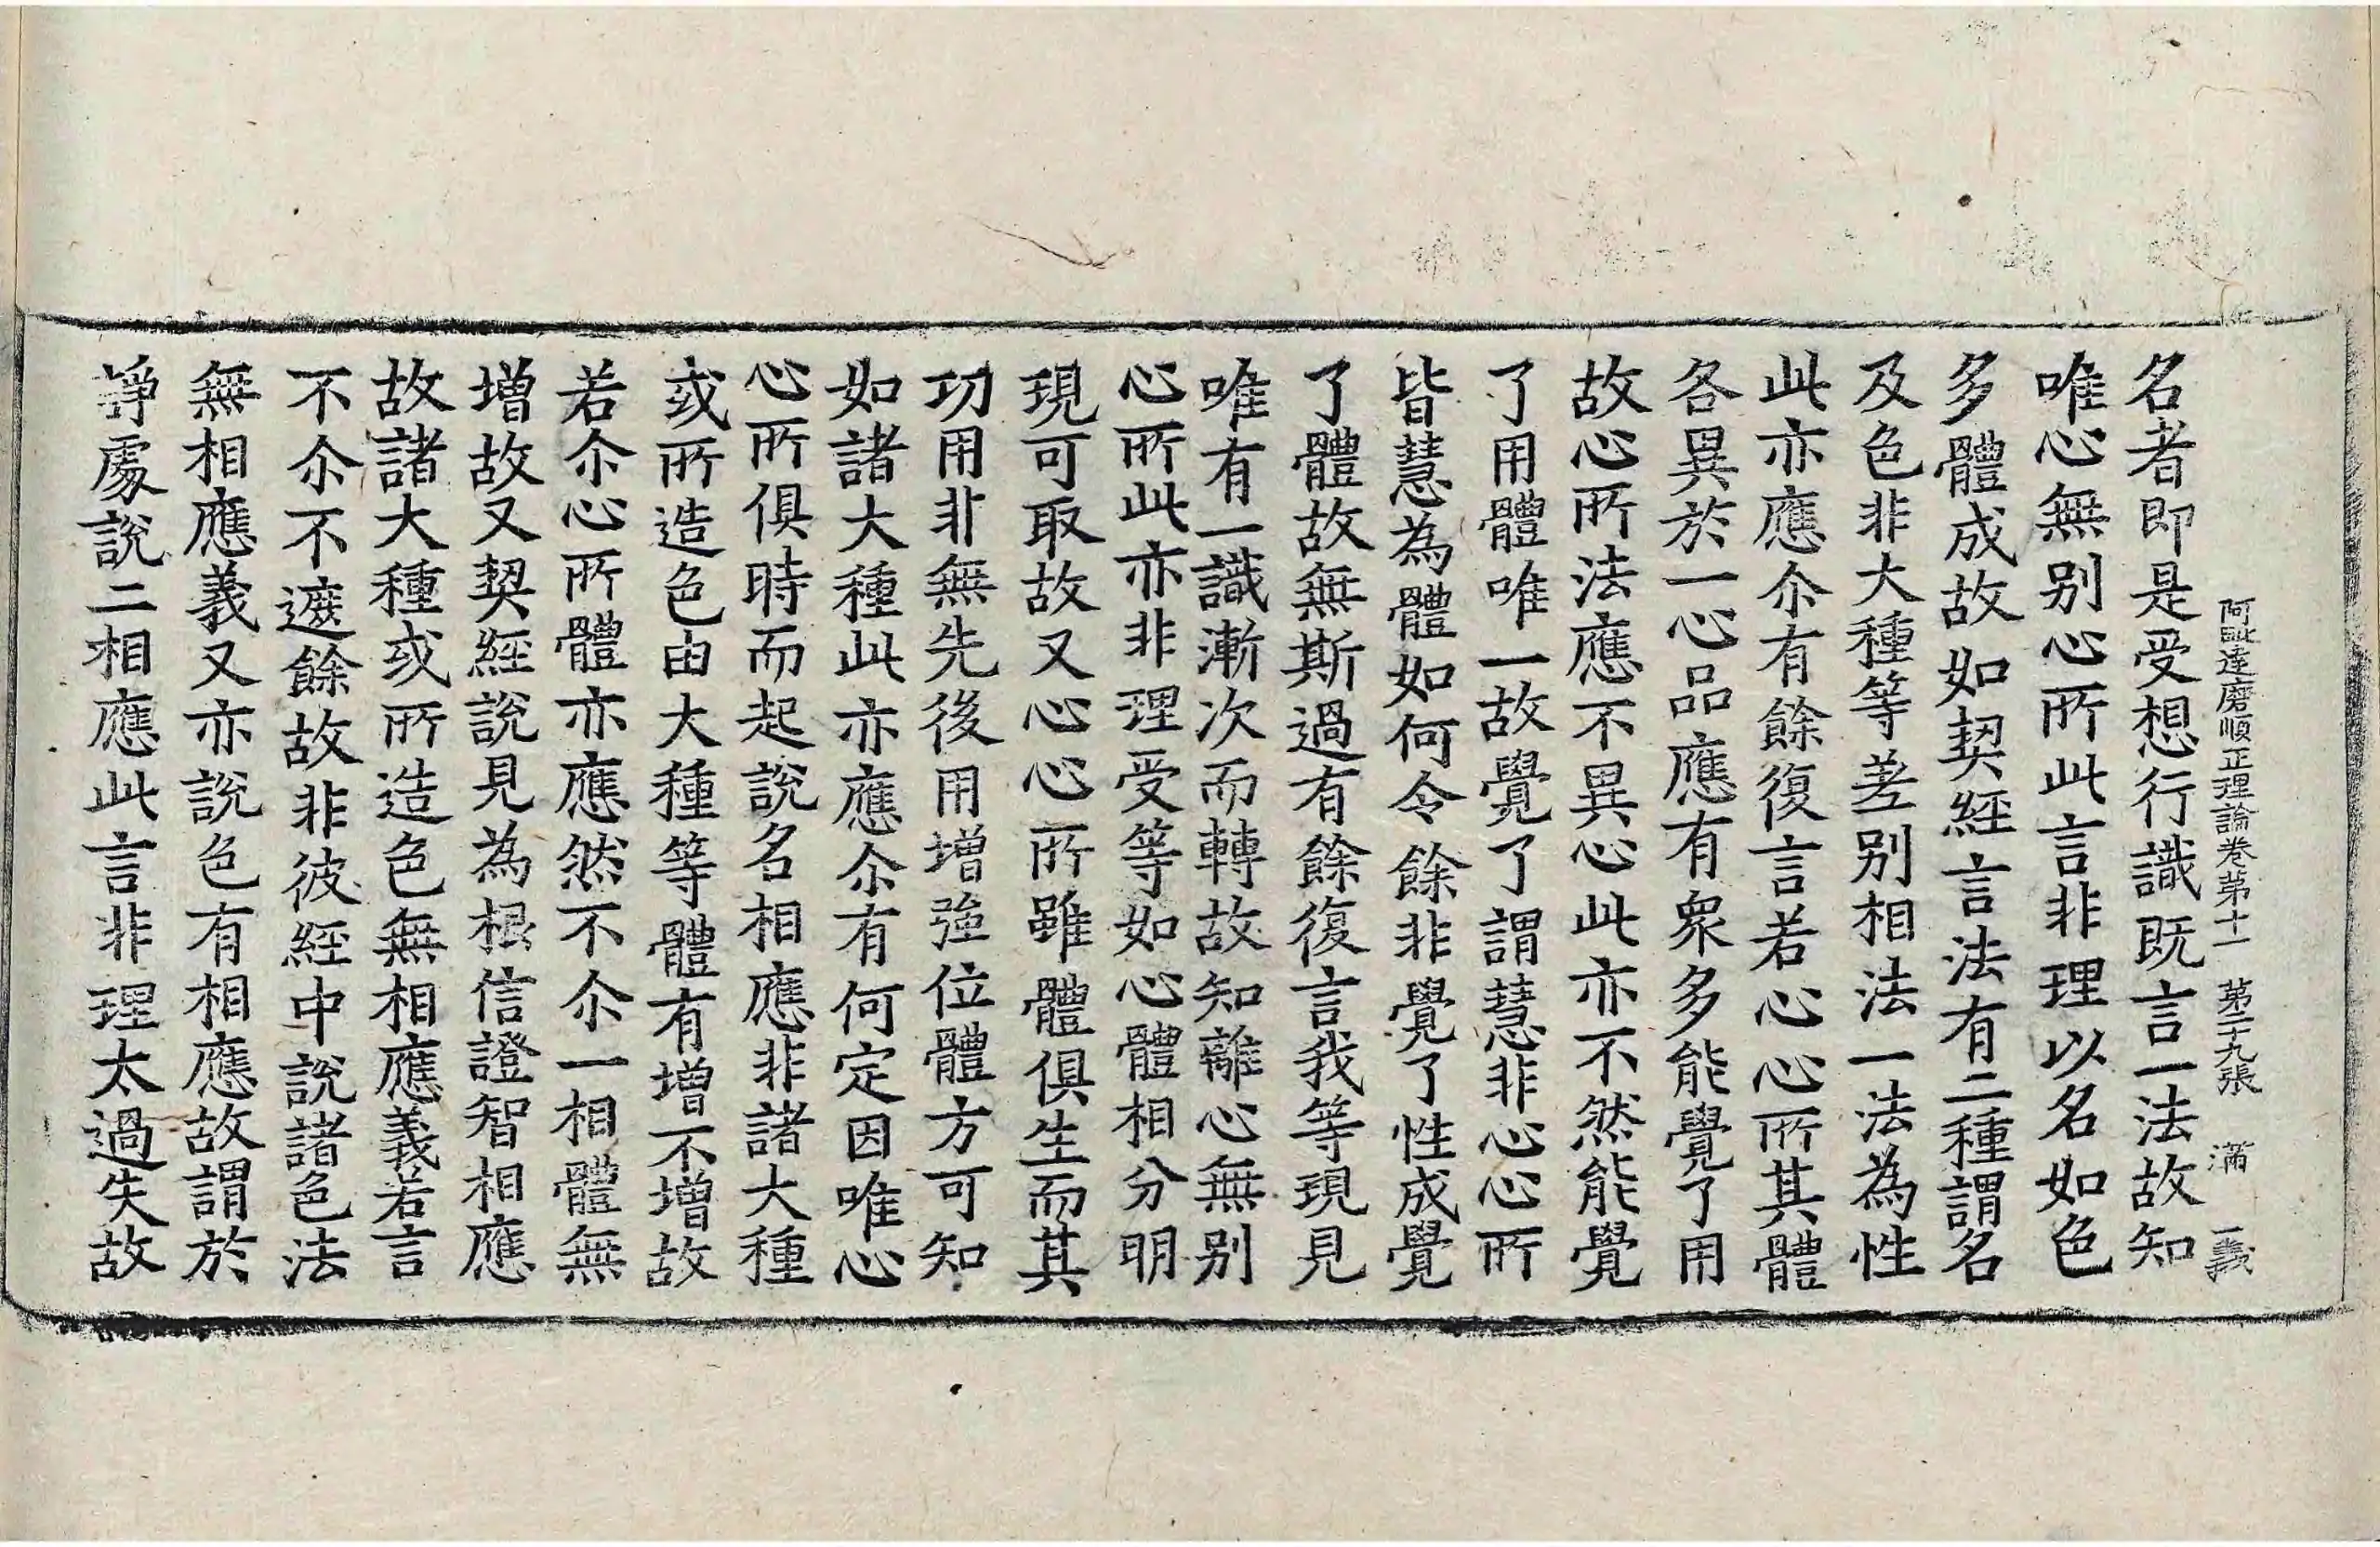 阿毗達磨順正理論卷第十一　第二十九張　滿　一義
名者即是受想行識既言一法故知
唯心無别心所此言非理以名如色
多體成故如契經言法有二種謂名
及色非大種等差别相法一法為性
此亦應尒有餘復言若心心所其體
各異於一心品應有衆多能覺了用
故心所法應不異心此亦不然能覺
了用體唯一故覺了謂慧非心心所
皆慧為體如何令餘非覺了性成覺
了體故無斯過有餘復言我等現見
唯有一識漸次而轉故知離心無别
心所此亦非理受等如心體相分明
現可取故又心心所雖體俱生而其
功用非無先後用增強位體方可知
如諸大種此亦應尒有何定因唯心
心所俱時而起說名相應非諸大種
或所造色由大種等體有增不增故
若尒心所體亦應然不尒一相體無
增故又契經說見為根信證智相應
故諸大種或所造色無相應義若言
不尒不遮餘故非彼經中說諸色法
無相應義又亦說色有相應故謂於
諍處說二相應此言非理太過失故